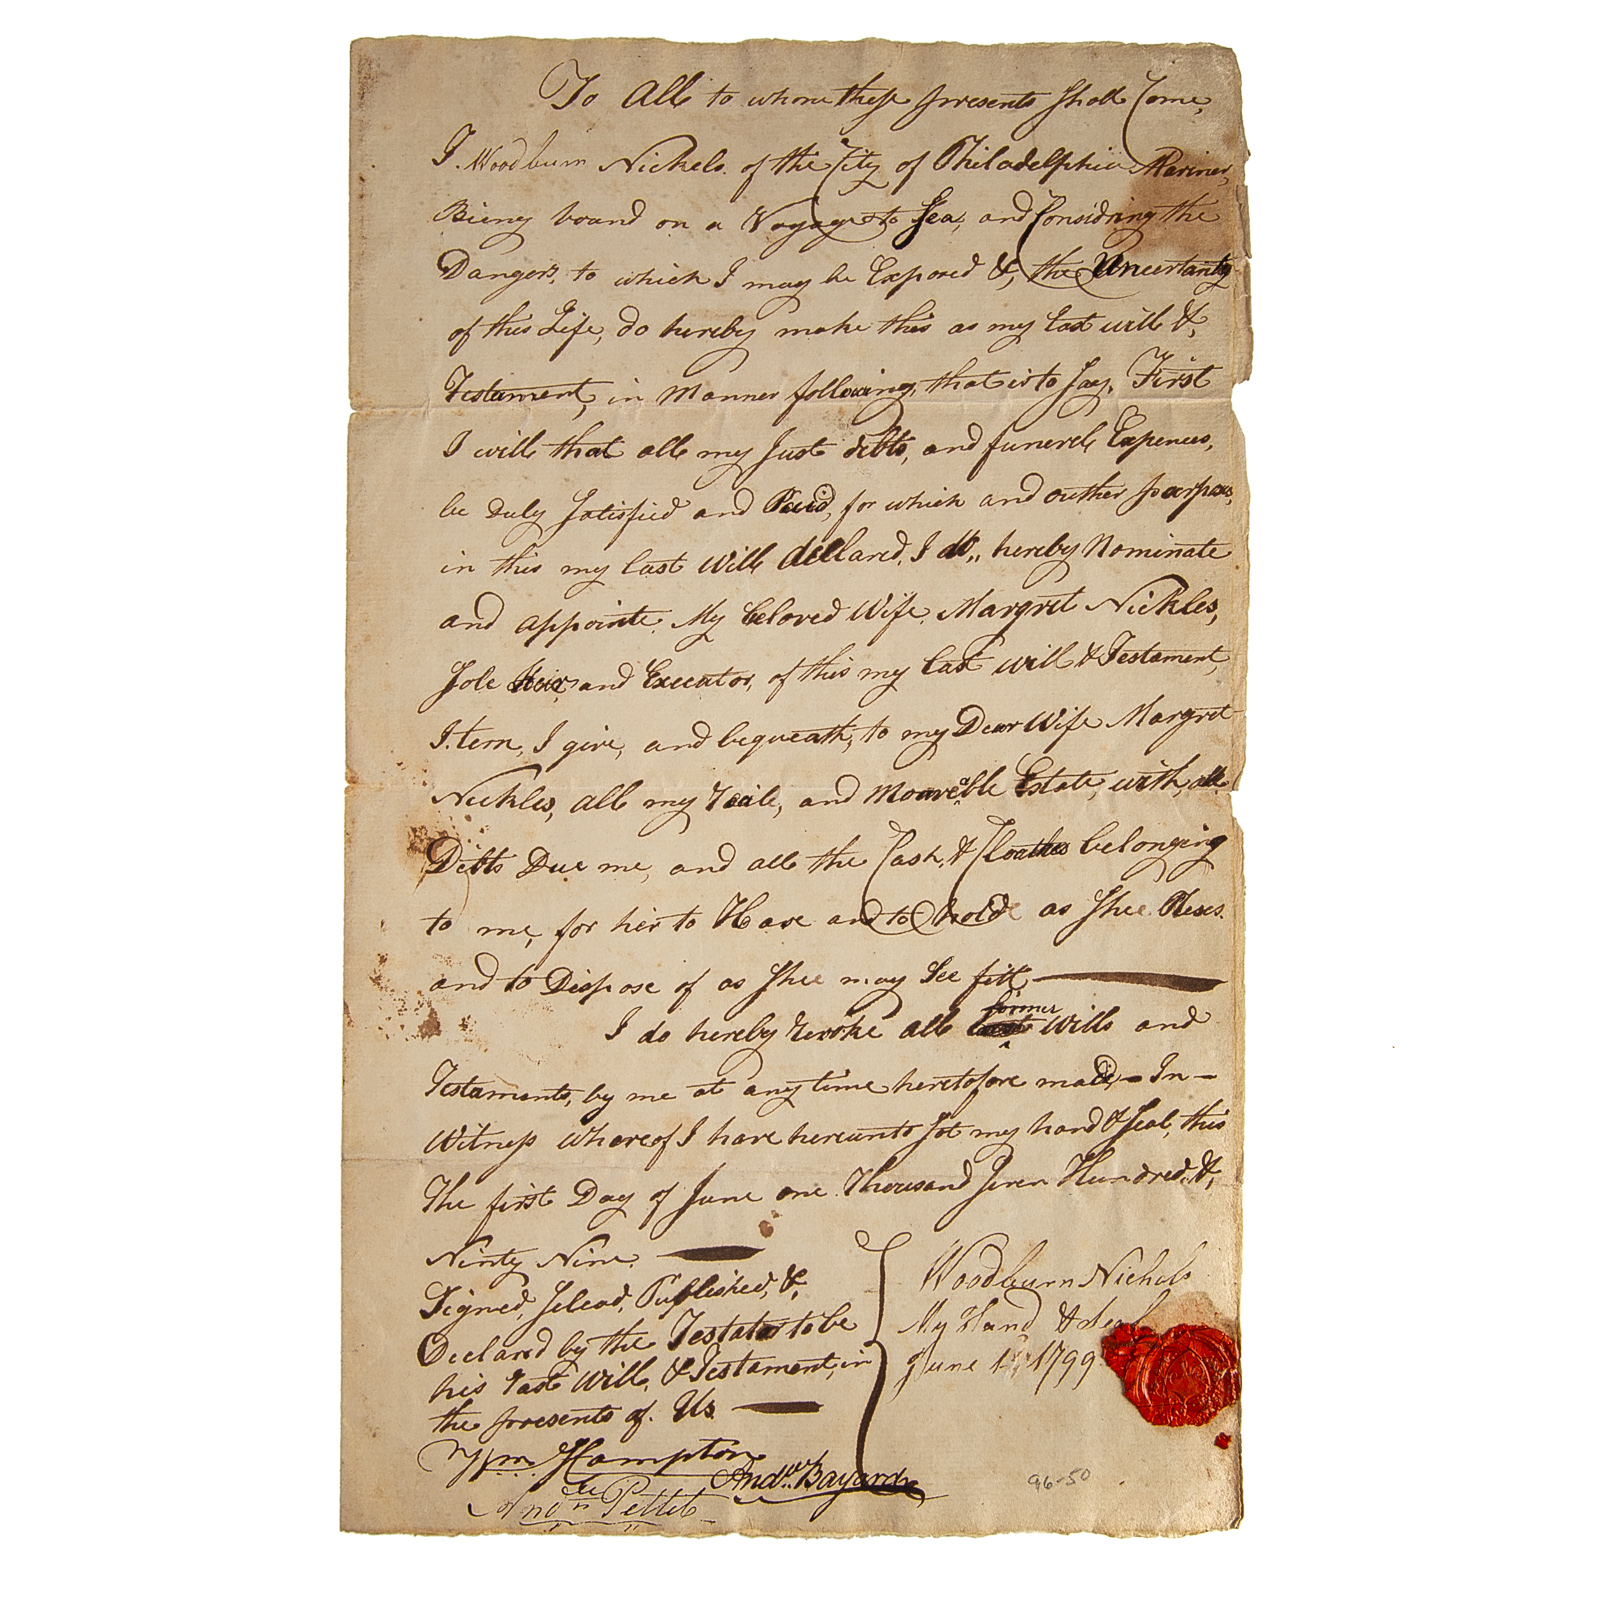 To All to whom these presents shall Come,
I. Woodburn Nickels. of the City of Philadelphia Mariner,
Bieng bound on a Voyage to Sea, and Considring the
Dangers, to which I may be Exposed &, the Uncertanty
of this Life, do hereby make this as my last will &,
Testament, in Manner following, that is to say, First
I will that all my Just debts, and funerel Expences,
be Duly Satisfied and Paid, for which and outher
in this my last Will declared, I do,, hereby Nominate
and appointe. My beloved Wife. Margret Nickles,
Sole Heir and Executor, of this my last will & Testament,
I.tem, I give, and bequeath, to my Dear Wife Margret
Nickles, all my reile, and Moaveable Estate, with, all
Debts Due me, and all the Cash, & Cloathes belonging
to me, for her to Have and to holde as Shee Pleses.
and to Dispose of as Shee may See fitt
I do hereby revoke all former Wills and
Testaments, by me at any time heretofore made,— In—
Witness whereof I have hereunto Set my hand & Seal, this
The first Day of June one Thousand Seven Hundred. &,
Ninty Nine.
Signed, Selead, Published, &,
Declared by the Testator to be
his last Will, & Testament, in
the presents of. Us
Wm Hampton
Andw Bayard
Andw Pettit
Woodburn Nichols
My Hand & Seal
June 1st 1799
96-50